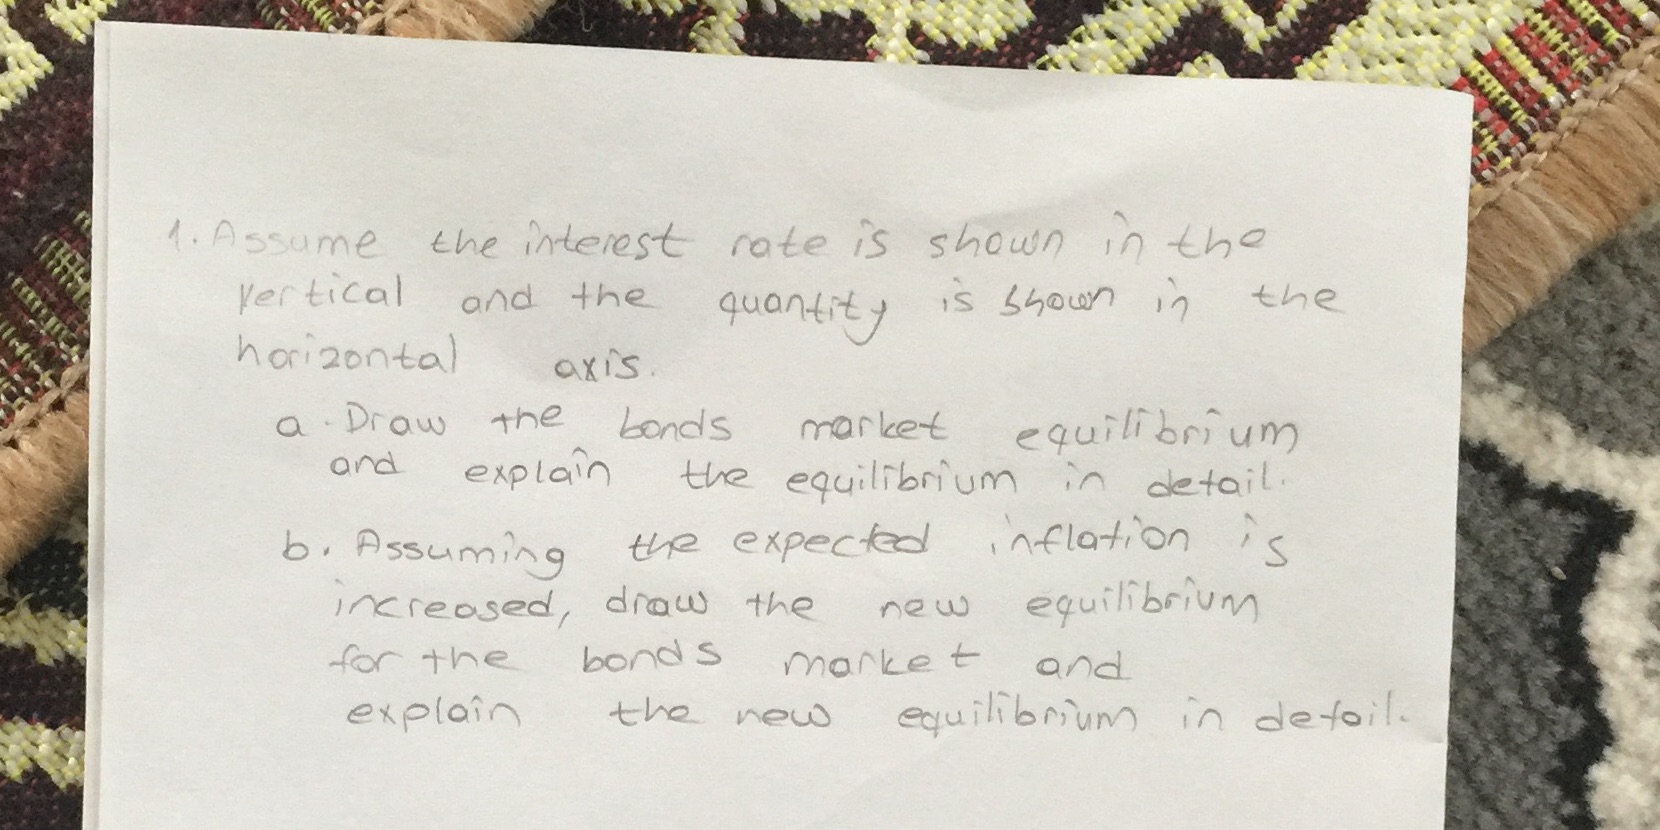 1. Assume the interest rate is shown in the
vertical and the quantity is shown in the
horizontal axis.
a. Draw the bonds market equilibrium
and explain the equilibrium in detail.
b. Assuming the expected inflation is
increased, draw the new equilibrium
for the bonds market and
explain the new equilibrium in detail.